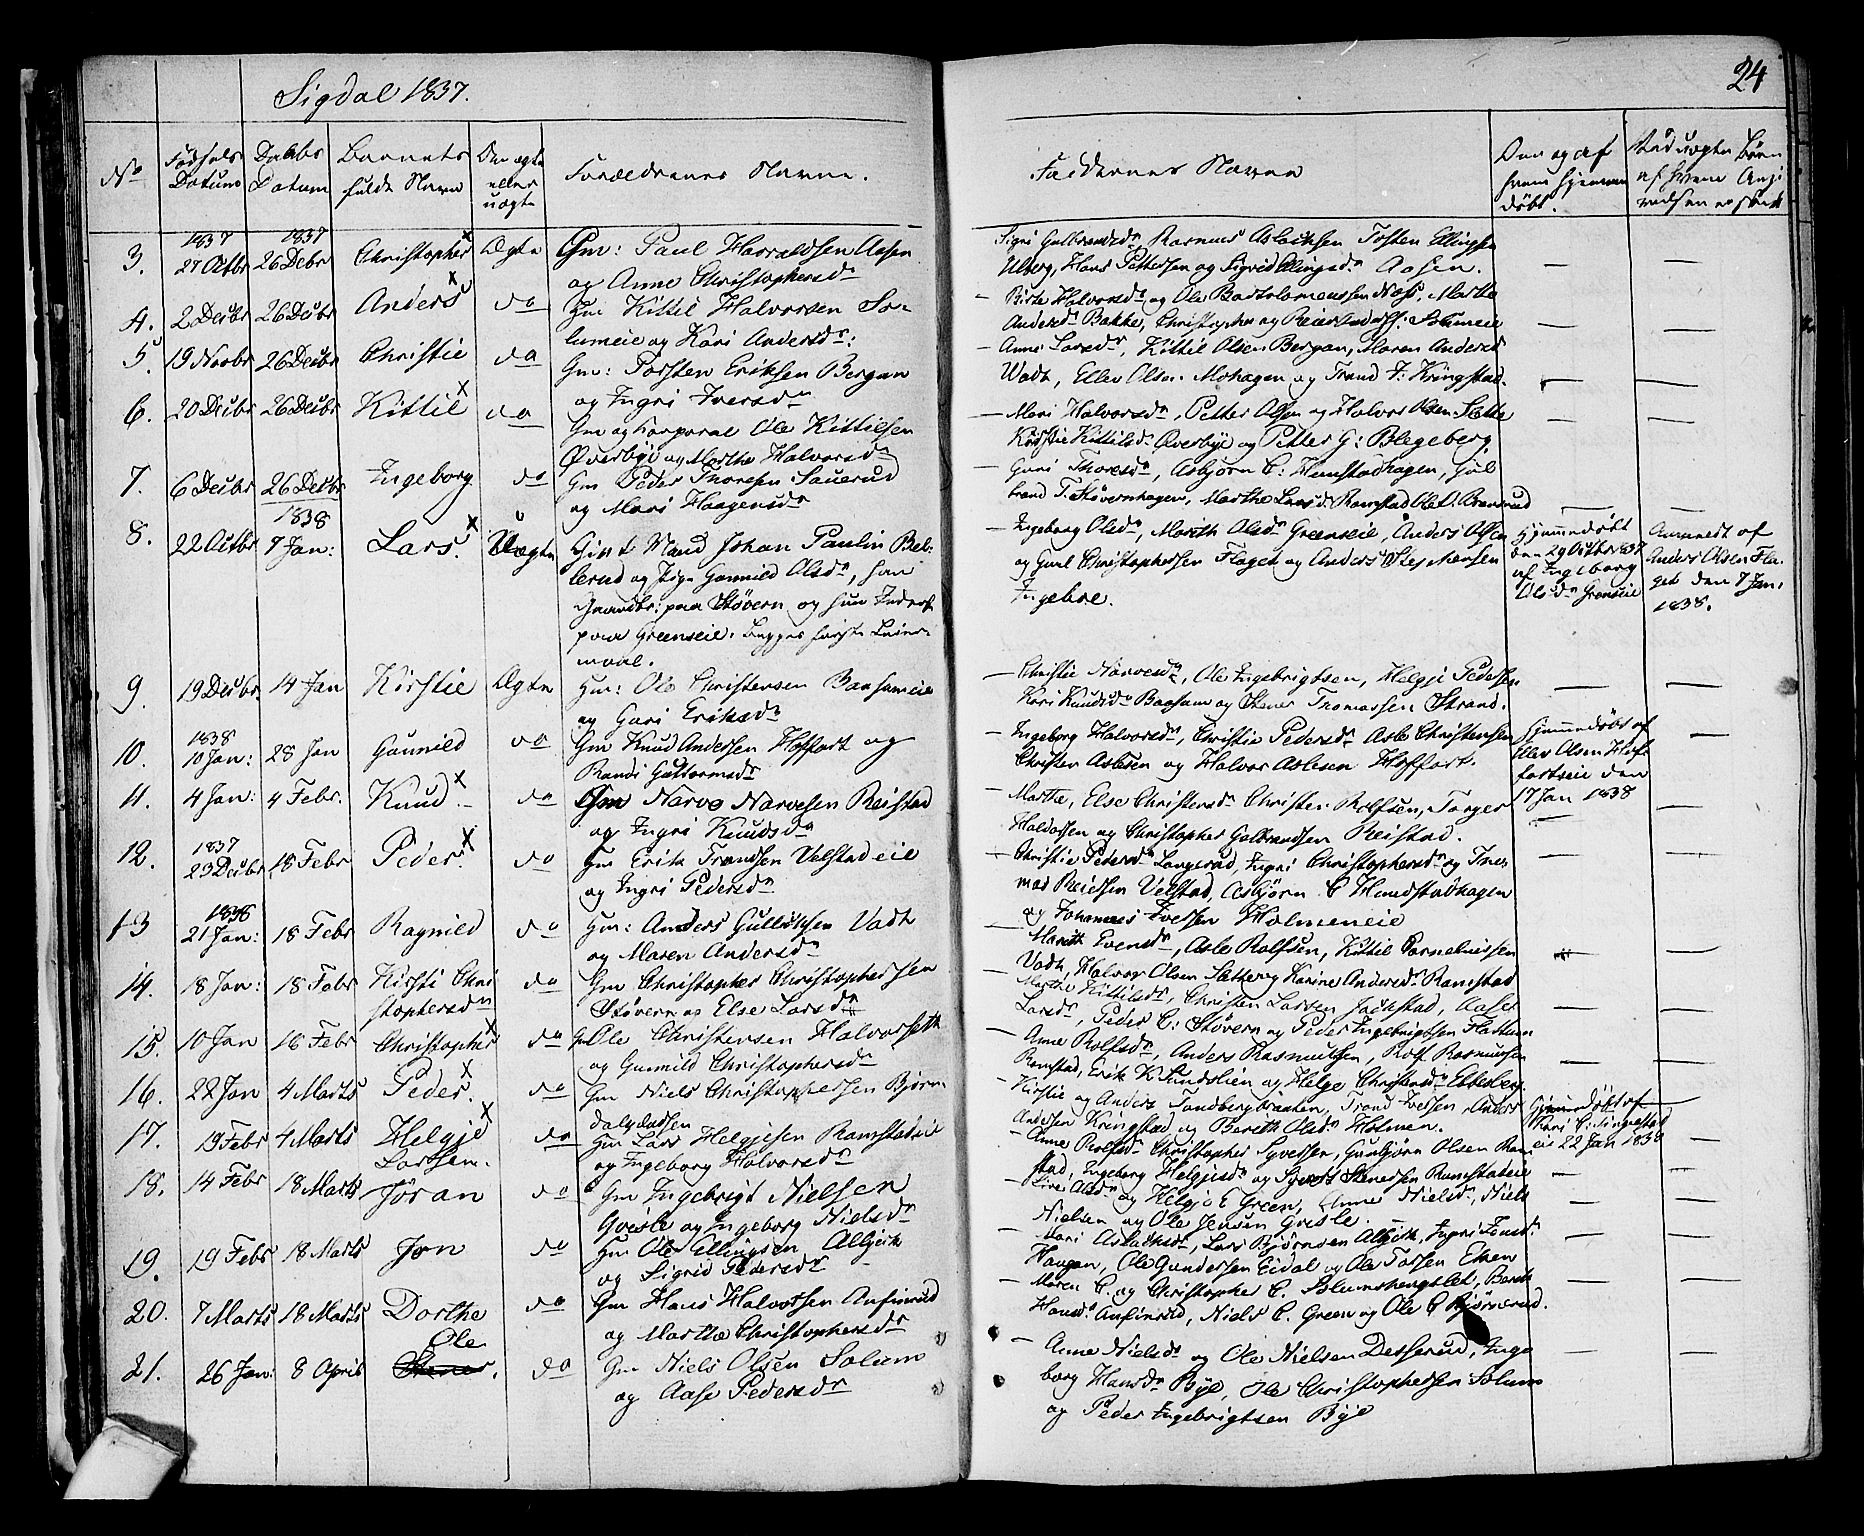 Sigdal 1837.
24
No
Fødsels Datum
Daabs Datum
Barnets fulde Navn
Om ægte eller uægte
Forældrenes Navne.
Faddernes Navne
Den og af hvem hjemmedøbt.
Ved uægte Børn af hvem Angivelsen er skeet
3.
1837 27 Octbr
1837 26 Debr
Christopher x
Ægte
Gm: Paul Harraldsen Aasen
og Anne Christophersdr
Sigri Gulbrandsdr, Rasmus Aslacksen Tosten Ellingsen
Ulberg, Hans Pettersen og Sigrid Ellingsdr Aasen.
4.
2 Decbr
26 Decbr
Anders x
do
Gm Kittil Halvorsen So-
lumeie og Kari Andersdr:
Birte Halvorsdr og Ole Bartolomeussen Næss, Marthe
Andersdr Bakke, Christopher og Solumeie
5.
19 Novbr
26 Decbr
Christie
do
Gm: Torsten Eriksen Bergan
og Ingri Iversdr
Anne Larsdr, Kittil Olsen Bergan, Maren Andersdr
Vadt, Ellev Olsen Mohagen og Trand J: Kringstad.
6.
20 Decbr
26 Decbr
Kittil x
do
Gm og Korporal Ole Kittilsen
Øverbye og Marthe Halvorsdr
Mari Halvorsdr, Petter Olsen og Halvor Olsen Sætte
Kirstie Kittilsdr Øverbye og Petter G: Blegeberg
7.
6 Decbr
26 Decbr
Ingeborg
do
Gm Peder Thoresen Sauerud
og Mari Haagensdr
Guri Thoresdr, Asbjørn C: Hunstadhagen, Gul
brand T. Støvernhagen, Marthe Larsd. Ramstad
8.
22 Octbr
1838 7 Jan:
Lars. x
Uægte
Gift Mand Johan Paulin Bel-
lerud og Pige Gunnild Olsdr, han
Gaardbr: paa Støvern og hun Inderst
paa Greenseie. Begges første Leier-
maal.
Ingeborg Olsdr, Marth Olsdr Greenseie, Anders Olsen
og Gurl Christophersen Flaget og Anders Stephensen
Ingebre.
Hjemmedøbt
den 29 Octbr 1837
af Ingeborg
Olsdr Grenseie
Anmeldt af
Anders Olsen Fla-
get den 7 Jan:
1838.
9.
19 Decbr
14 Jan
Kirstie
Ægte
Gm: Ole Christensen Baasumeie
og Guri Eriksdr
Christie Narvesdr, Ole Ingebrigtsen, Helgje Pedersen
Kari Knudsdr Baasum og Stener Thomassen Strand.
10.
1838 10 Jan:
28 Jan
Gunnild
do
Gm Knud Andersen Hoffart og
Randi Guttormsdr
Ingeborg Halvorsdr, Christie Pedersdr Asle Christensen
Christen Aslesen og Halvor Aslesen Hoffart.
Hjemmedøbt af
Ellev Olsen Hof-
fartseie den
17 Jan 1838
11.
4 Jan:
4 Febr.
Knud x
do
Gm Narve Narvesen Reistad
og Ingri Knudsdr
Marthe, Else Christensdr Christen Rolfsen, Torger
Haldorsen og Christopher Gulbrandsen Reistad.
12.
1837 23 Decbr
18 Febr
Peder x
do
Gm Erik Trandsen Velstadeie
og Ingri Pedersdr
Christie Pedersdr Langerud, Ingri Christophersdr og
Reiersen Velstad, Asbjørn C Hunstadhagen
og Johannes Iversen Holmeneie
13
1838 21 Jan:
18 Febr
Ragnild
do
Gm: Anders Gulliksen Vadt
og Maren Andersdr
Marith Evensdr, Asle Rolfsen, Kittil Corneliusen
Vadt, Halvor Olsen Sætte og Karine Andersdr Ramstad
14.
18 Jan:
18 Febr
Kirsti Chri
stophersdr
do
Gm Christopher Christophersen
Støvern og Else Larsdr
Marthe Kittilsdr, Christen Larsen Jackstad, Aaste
Larsdr, Peder C: Støvern og Peder Ingebrigtsen Flattum
15.
10 Jan
18 Febr
Christopher x
do
Gm Ole Christensen Halvorseth
og Gunnild Christophersdr
Anne Rolfsdr, Anders Rasmussen, Rolf Rasmussen
Ramstad, Erik K Sundslien og Helge Christensdr
16.
22 Jan
4 Marts
Peder. x
do
Gm Niels Christophersen Bjørn
dalspladsen
Kirstie og Anders Sandbergbraaten, Trand Iversen, Anders
Andersen Kringstad og Bereth Olsdr Holmen.
Hjemmedøbt af
Kari C:
22 Jan 1838
17.
19 Febr
4 Marts
Helgje x
Larssen.
do
Gm Lars Helgjesen Ramstadeie
og Ingeborg Halvorsdr
Anne Rolfsdr Christopher Syversen, Gunbjørn Olsen Ram
stad, Ingeborg Helgjesdr og Syvert Stenersen Ramstadeie
18.
14 Febr
18 Marts
Jøran
do
Gm Ingebrigt Nielsen
Grisle og Ingeborg Nielsdr
Live Olsdr og Helgje E Green, Anne Nielsdr, Niels
Nielsen og Ole Jensen Grisle.
19.
19 Febr
18 Marts
Jon
do
Gm Ole Ellingsen Albjerk
og Sigrid Pedersdr
Kari Aslaksdr, Lars Bjørnsen Albjerk, Ingri
Haugen, Ole Gundersen Eidal og Ole Tossen Eken
20.
7 Marts
18 Marts
Dorthe
do
Gm Hans Halvorsen Anfinrud
og Marthe Christophersdr
Maren C. og Christopher C. Solumshengslet, Bereth
Hansdr Anfinrud, Niels C. Green og Ole C Bjørnerud.
21.
26 Jan:
8 April
Ole
do
Gm Niels Olsen Solum
og Aase Pedersdr
Anne Nielsdr og Ole Nielsen Desserud, Inge
borg Hansdr Bye, Ole Christophersen Solum
og Peder Ingebrigtsen Bye